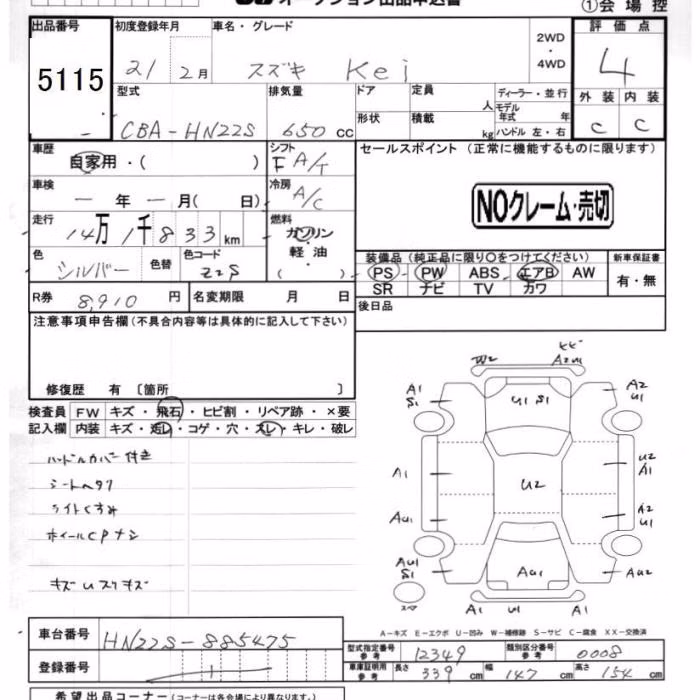 オークション出品申込書
①会場控
出品番号 初度登録年月 車名・グレード 2WD・4WD 評価点
5115 21 2月 スズキ Kei 4
型式 排気量 ドア 定員 人 ディーラー・並行 外装 内装
モデル年式 年
CBA-HN22S 650cc 形状 積載 kg ハンドル 左・右 C C
車歴 シフト セールスポイント (正常に機能するものに限ります)
自家用・( ) F A/T
車検 冷房 NOクレーム・売切
ー 年 ー 月( 日) A/C
走行 燃料
14万 1千 833km ガソリン
軽油
( )
色 色替 色コード 装備品 (純正品に限り○をつけてください) 新車保証書
シルバー Z2S PS PW ABS エアB AW 有・無
SR ナビ TV カワ
R券 8,910円 名変期限 月 日 後日品
注意事項申告欄(不具合内容等は具体的に記入して下さい)
修復歴 有 〔箇所 〕
検査員 FW キズ・飛石・ヒビ割・リペア跡・×要
記入欄 内装 キズ・汚レ・コゲ・穴・スレ・キレ・破レ
ハンドルカバー付き
シートヘタリ
ライトくすみ
ホイールCPナシ
キズUスリキズ
W2
A2U1
A1
S1
U1 S1
A2
U1
A1
U2
U2
A1
AU1
A2
U1
AU1
S1
AU1
AU2
A1 U1 U1
A-キズ E-エクボ U-凹み W-補修跡 S-サビ C-腐食 XX-交換済
車台番号 HN22S-885475
型式指定番号 参考 12349 類別区分番号 参考 0008
登録番号
車庫証明用 参考 長さ 339cm 幅 147cm 高さ 154cm
希望出品コーナー(コーナーは各会場により異なります。)